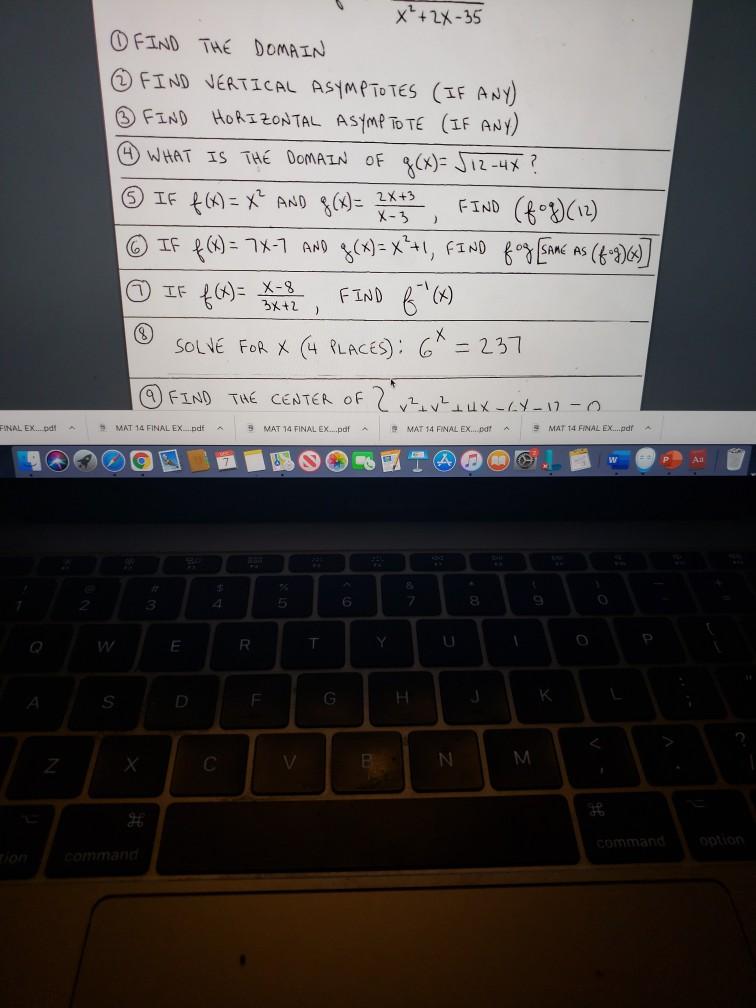 x²+2x-35
① FIND THE DOMAIN
② FIND VERTICAL ASYMPTOTES (IF ANY)
③ FIND HORIZONTAL ASYMPTOTE (IF ANY)
④ WHAT IS THE DOMAIN OF g(x)= √12-4x ?
⑤ IF f(x)= x² AND g(x)= 2x+3/x-3, FIND (f∘g)(12)
⑥ IF f(x)= 7x-7 AND g(x)=x²+1, FIND f∘g [SAME AS (f∘g)(x)]
⑦ IF f(x)= x-8/3x+2, FIND f⁻¹(x)
⑧ SOLVE FOR X (4 PLACES): 6ˣ = 237
⑨ FIND THE CENTER OF
FINAL EX....pdf MAT 14 FINAL EX....pdf MAT 14 FINAL EX....pdf MAT 14 FINAL EX....pdf MAT 14 FINAL EX....pdf
7 W P Aa
! @ # $ % ^ & * ( )
1 2 3 4 5 6 7 8 9 0
Q W E R T Y U I O P
A S D F G H J K L
Z X C V B N M < , > . ?
tion ⌘ command ⌘ command option